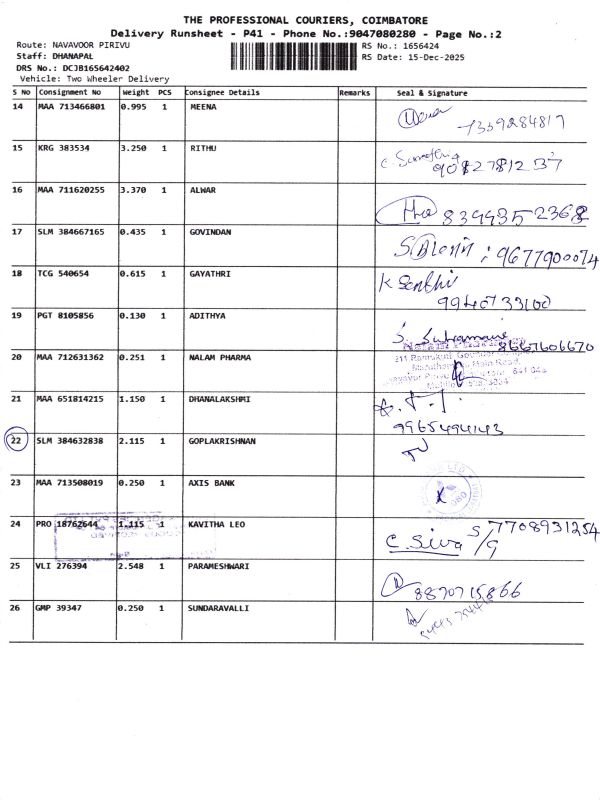 THE PROFESSIONAL COURIERS, COIMBATORE
Delivery Runsheet - P41 - Phone No.:9047080280 - Page No.:2
Route: NAVAVOOR PIRIVU
RS No.: 1656424
Staff: DHANAPAL
RS Date: 15-Dec-2025
DRS No.: DCJB165642402
Vehicle: Two Wheeler Delivery
S No Consignment No Weight PCS Consignee Details Remarks Seal & Signature
14 MAA 713466801 0.995 1 MEENA
7339284817
15 KRG 383534 3.250 1 RITHU
9082781237
16 MAA 711620255 3.370 1 ALWAR
8399352368
17 SLM 384667165 0.435 1 GOVINDAN
: 9677900074
18 TCG 540654 0.615 1 GAYATHRI
K Senthi
9940733100
19 PGT 8105856 0.130 1 ADITHYA
8667606670
20 MAA 712631362 0.251 1 NALAM PHARMA
21 MAA 651814215 1.150 1 DHANALAKSHMI
9965494143
22 SLM 384632838 2.115 1 GOPLAKRISHNAN
23 MAA 713508019 0.250 1 AXIS BANK
24 PRO 18762644 1.115 1 KAVITHA LEO
C. Siva S/g 7708931254
25 VLI 276394 2.548 1 PARAMESHWARI
8870715866
26 GMP 39347 0.250 1 SUNDARAVALLI